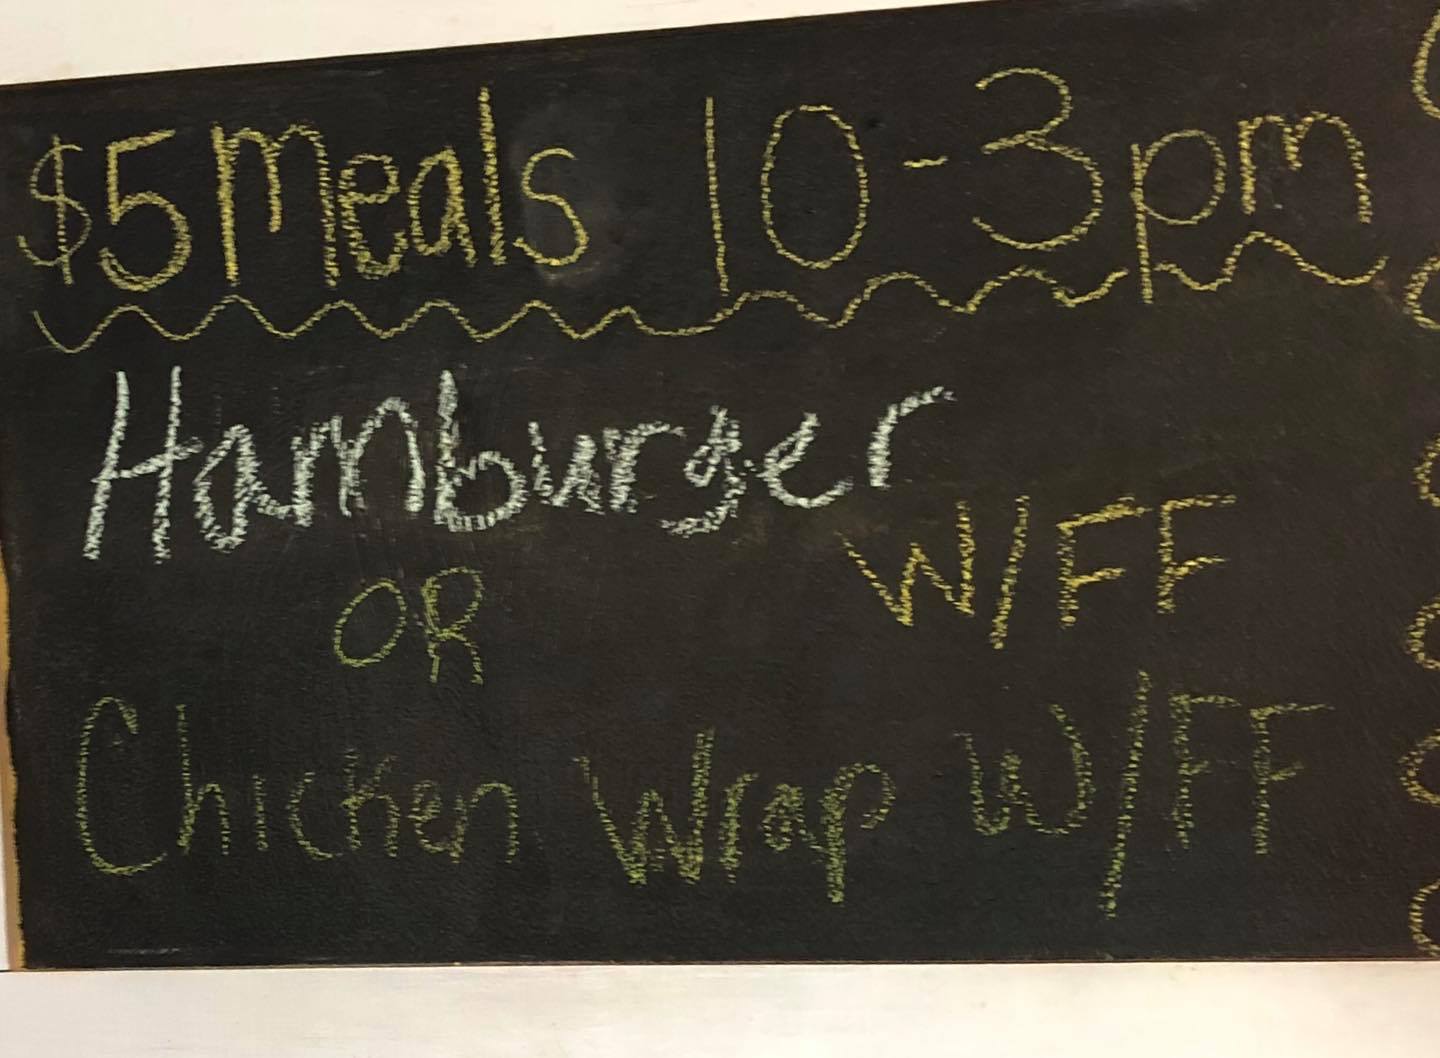 $5 Meals 10-3pm
Hamburger
W/FF
OR
Chicken Wrap W/FF